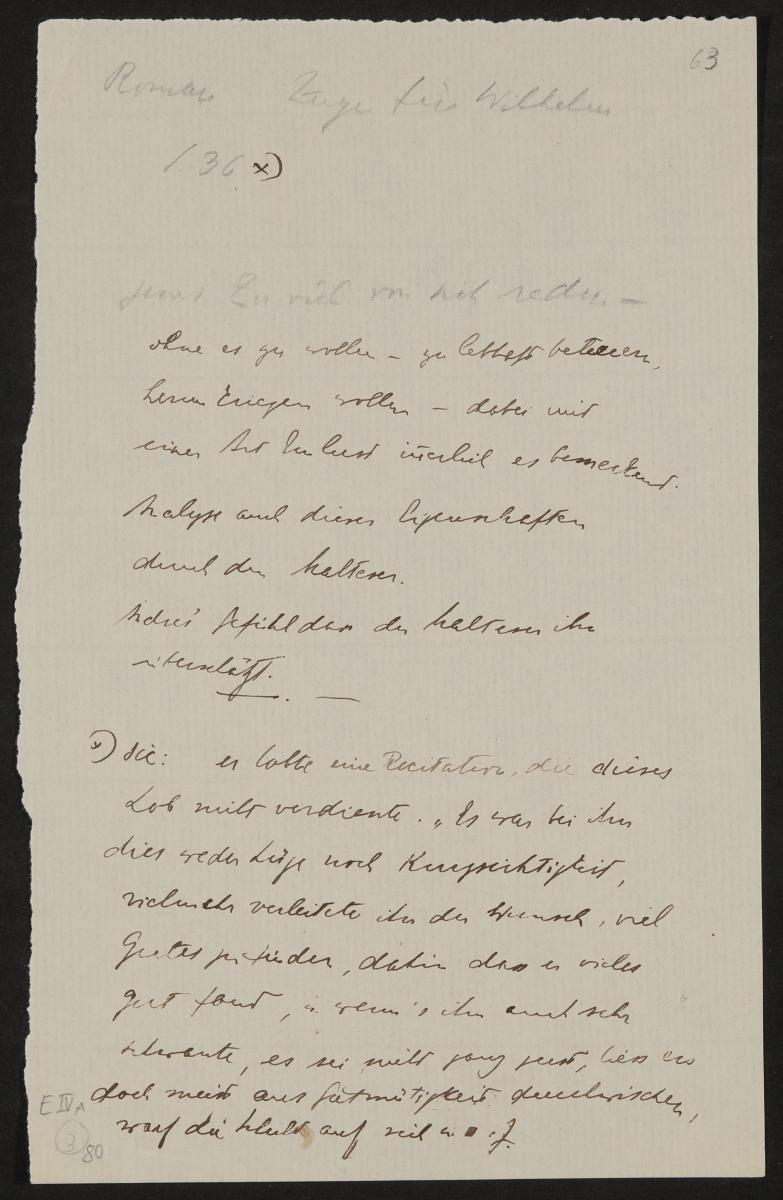 63
Roman Züge für Wilhelm
136 x)
zu viel von sich reden —
ohne es zu wollen — zu lebhaft beteuern,
wollen — dabei mit
einer Art Unlust innerlich es bemerkend.
Analyse auch dieser Eigenschaften
durch den Malteser.
Andres' Gefühl dass der Malteser ihn
—
x) sic: er lobte eine Recitation, die dieses
Lob nicht verdiente. „Es war bei ihm
dies weder Lüge noch Kurzsichtigkeit,
vielmehr verleitete ihn der Wunsch, viel
Gutes zu finden, dahin dass er vieles
gut fand, u. wenn's ihm auch sehr
schwante, es sei nicht ganz gut, liess er's
doch meist aus Gutmütigkeit durchwischen,
warf die Schuld auf sich u.
E IV A
3
80